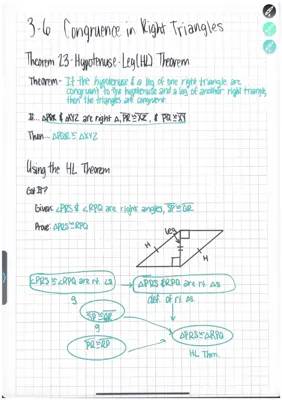 3-6 Congruence in Right Triangles
Theorem 23-Hypotenuse-Leg (HL) Theorem
Theorem- If the hypotenuse & a leg of one right triangle are
congruent to the hypotenuse and a leg of another right triangle,
then the triangles are congruent
If... ΔPQR & ΔXYZ are right Δ, PR ≅ XZ, & PQ ≅ XY
Then... ΔPQR ≅ ΔXYZ
Using the HL Theorem
Got It?
Given: ∠PRS & ∠RPQ are right angles, SP ≅ QR
Prove: ΔPRS ≅ ΔRPQ
Leg
H
H
∠PRS & ∠RPQ are rt. ∠s
ΔPRS & RPQ are rt. Δs
g
def. of rt. Δs
SP ≅ QR
g
PR ≅ RP
ΔPRS ≅ ΔRPQ
HL Thm.